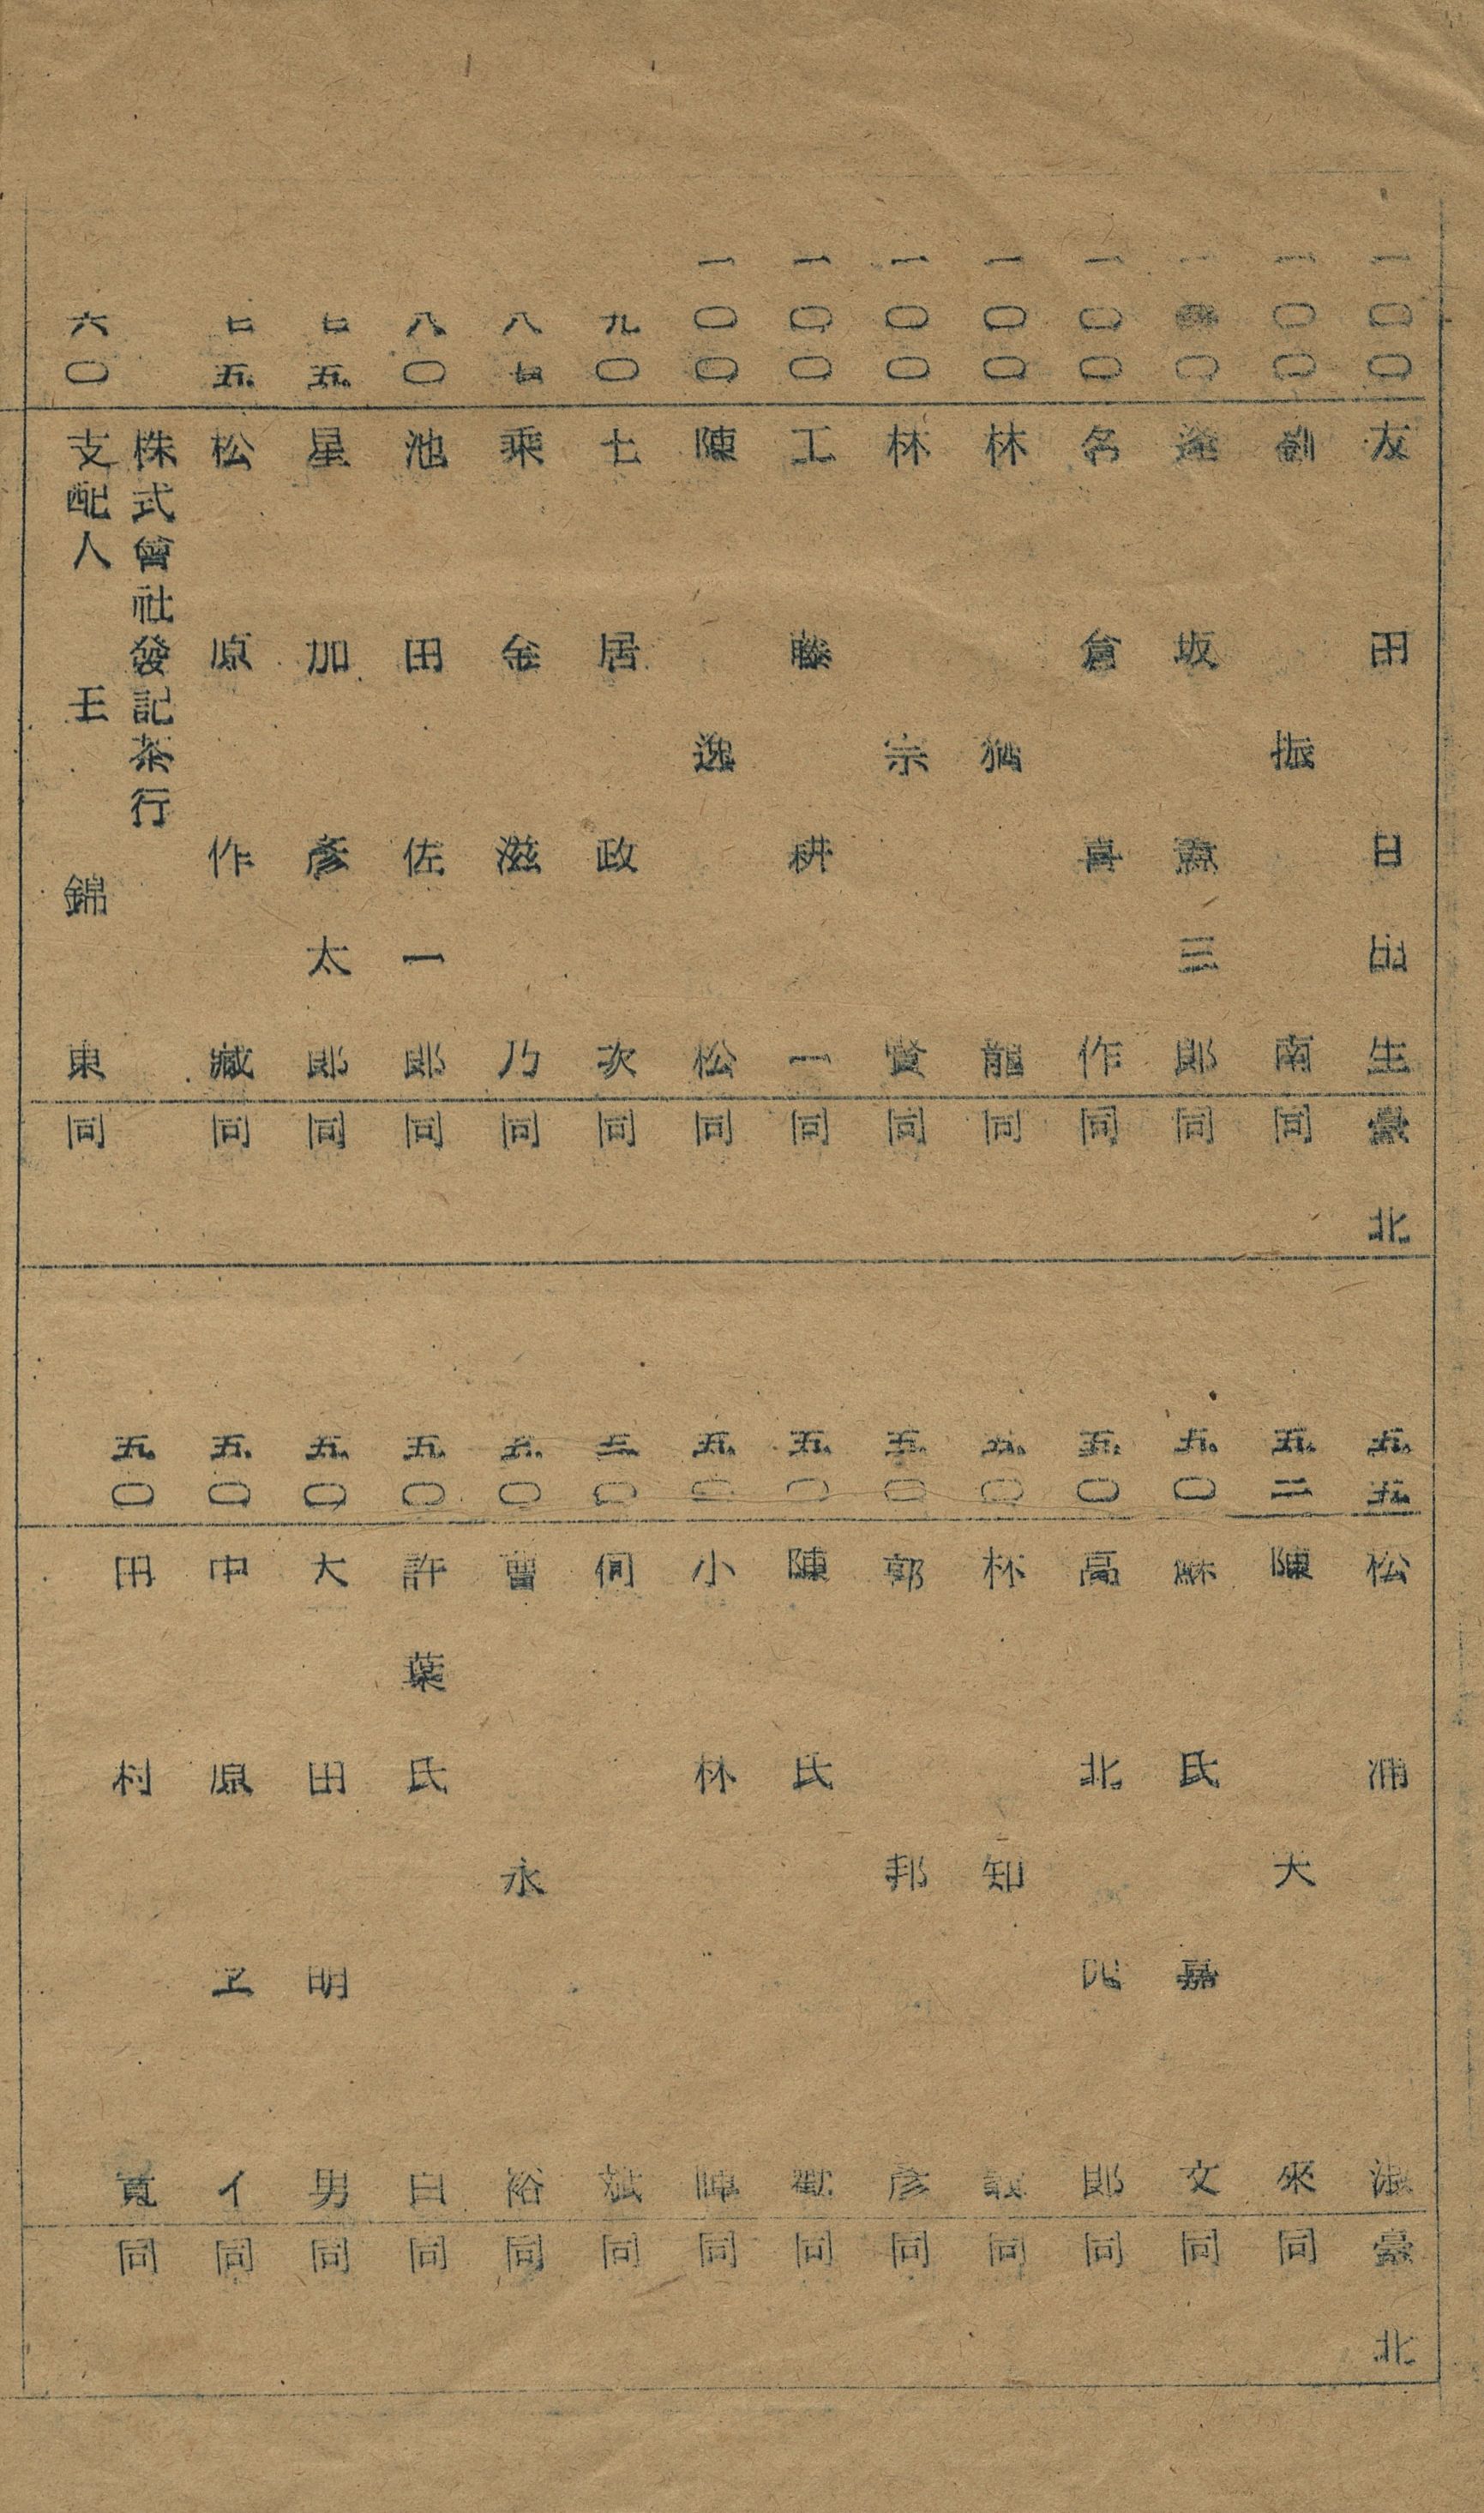 一〇〇 友田日出生 臺北
一〇〇 劉振南 同
一〇 逢坂 三郎 同
一〇〇 名倉喜作 同
一〇〇 林猶龍 同
一〇〇 林宗賢 同
一〇〇 工藤耕一 同
一〇〇 陳逸松 同
九〇 土居政次 同
八七 乘金滋乃 同
八〇 池田佐一郎 同
七五 星加彥太郎 同
七五 松原作藏 同
株式會社發記茶行
六〇 支配人 王錦東 同
五五 松浦淑 臺北
五二 陳大來 同
五〇 蘇氏嘉文 同
五〇 高北四郎 同
五〇 林知義 同
五〇 郭邦彥 同
五〇 陳氏 同
五〇 小林 同
〇 何 同
五〇 曹永裕 同
五〇 許葉氏白 同
五〇 大田明男 同
五〇 中原ヱイ 同
五〇 田村寬 同